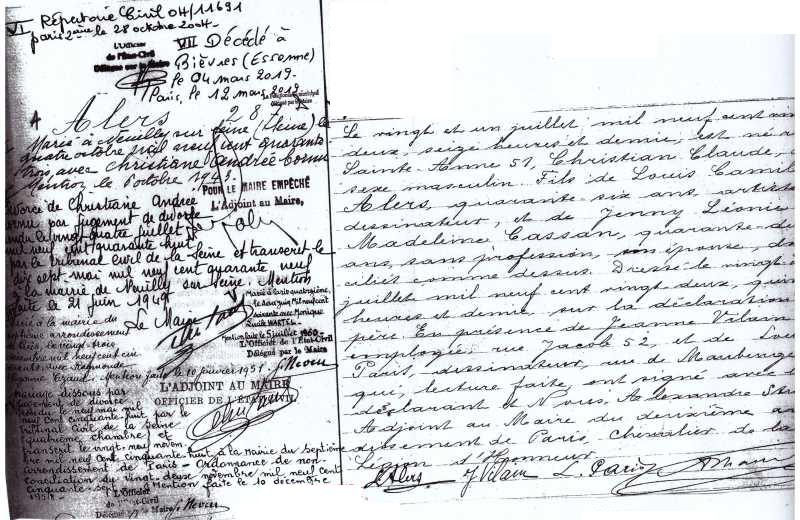 VI Répertoire Civil 04/11691
Paris 2ème le 28 octobre 2004.
L'Officier
de l'Etat-Civil
Délégué par le Maire
VII Décédé à
Bièvres (Essonne)
le 04 mars 2019.
Paris, le 12 mars 2019
délégué par le Maire
Alers 287
Marié à Neuilly sur Seine (Seine) le
quatre octobre mil neuf cent quarante
trois, avec Christiane Andrée Cornu
Mention le 6 octobre 1943.
POUR LE MAIRE EMPÊCHÉ
L'Adjoint au Maire,
divorcé de Christiane Andrée
Cornu par jugement de divorce
rendu le vingt quatre juillet
mil neuf cent quarante huit
par le tribunal civil de la Seine et transcrit le
dix sept mai mil neuf cent quarante neuf
la mairie de Neuilly sur Seine. Mention
faite le 21 juin 1949
Le Maire
Marié à Paris quatorzième,
le mil neuf cent
soixante avec Monique
Mention faite le 5 juillet 1960
L'Officier de l'Etat-Civil
Délégué par le Maire
Marié à la mairie du
arrondissement
le vingt trois
mil neuf cent cin
avec Raymonde
Mention faite le 10 janvier 1951
L'ADJOINT AU MAIRE
OFFICIER DE L'ETAT-CIVIL
Mariage dissous par
jugement de divorce
rendu le neuf mai mil
neuf cent cinquante huit par le
tribunal civil de la Seine
quatrième chambre et
transcrit le vingt neuf novem
bre mil neuf cent cinquante huit à la Mairie du Septième
arrondissement de Paris - Ordonnance de non-
conciliation du vingt deux novembre mil neuf cent
cinquante sept. Mention faite le 10 décembre
1958.
L'Officier
de l'Etat-Civil
Délégué par le Maire
Le vingt et un juillet mil neuf cent vin
deux, seize heures et demie, est né r
Sainte-Anne 51, Christian Claude,
sexe masculin. Fils de Louis Camil
Alers, quarante six ans, artiste
dessinateur, et de Jenny Léonie
Madeleine Cassan, quarante de
ans, sans profession, son épouse, do
cilié comme dessus. Dressé le vingt
juillet mil neuf cent vingt deux, qui
heures et demie, sur la déclaration
père. En présence de Jeanne Vilain
employée, rue Jacob 52, et de Lou
Paris, dessinateur, rue de Maubeuge
qui, lecture faite, ont signé avec le
déclarant et Nous, Alexandre
Adjoint au Maire du deuxième ar
dissement de Paris, Chevalier de la
Légion d'Honneur.
Alers J Vilain L. Paris